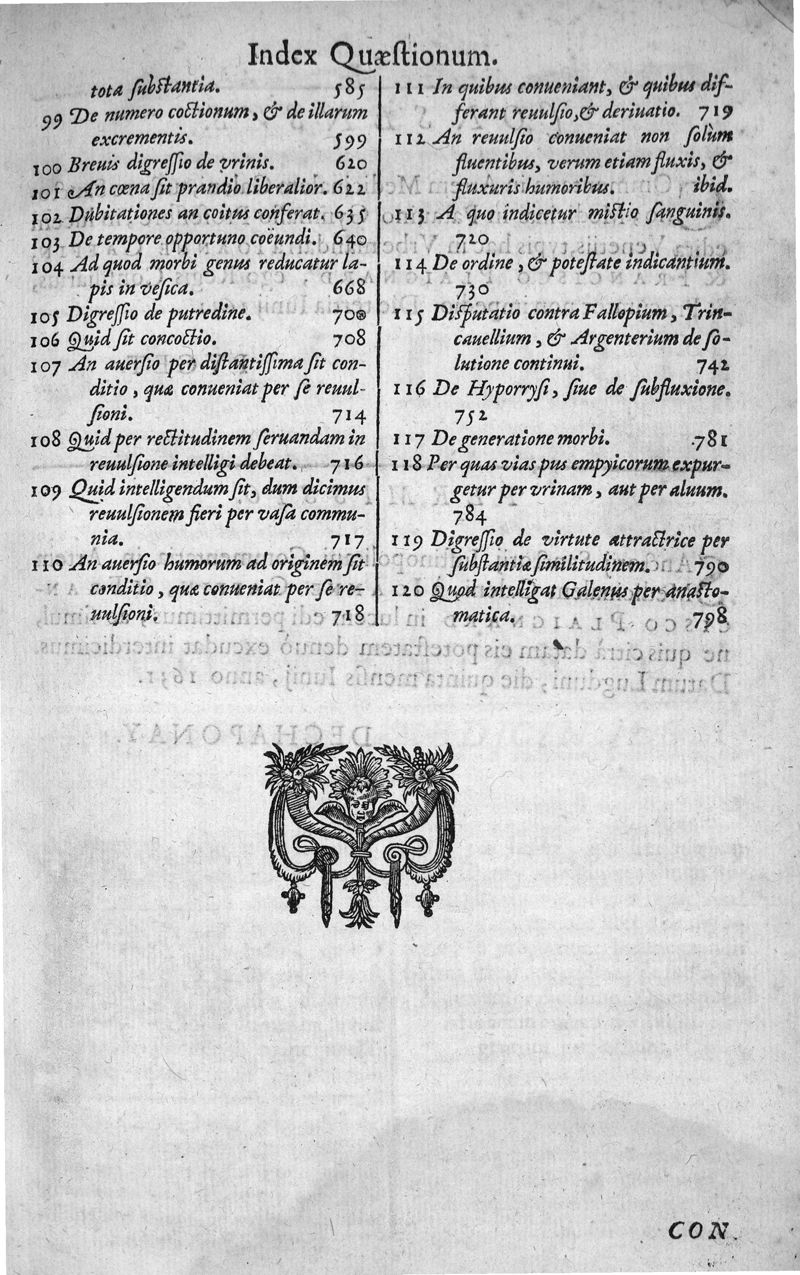 Index Quæſtionum.
tota ſubſtantia. 585
99 De numero coctionum, & de illarum
excrementis. 599
100 Breuis digreſſio de vrinis. 620
101 An cœna ſit prandio liberalior. 622
102 Dubitationes an coitus conferat. 635
103 De tempore opportuno coëundi. 640
104 Ad quod morbi genus reducatur la-
pis in veſica. 668
105 Digreſſio de putredine. 700
106 Quid ſit concoctio. 708
107 An auerſio per diſtantiſſima ſit con-
ditio, quæ conueniat per ſe reuul-
ſioni. 714
108 Quid per rectitudinem ſeruandam in
reuulſione intelligi debeat. 716
109 Quid intelligendum ſit, dum dicimus
reuulſionem fieri per vaſa commu-
nia. 717
110 An auerſio humorum ad originem ſit
conditio, quæ conueniat per ſe re-
uulſioni. 718
111 In quibus conueniant, & quibus dif-
ferant reuulſio, & deriuatio. 719
112 An reuulſio conueniat non ſolùm
fluentibus, verum etiam fluxis, &
fluxuris humoribus. ibid.
113 A quo indicetur miſtio ſanguinis.
720
114 De ordine, & poteſtate indicantium.
730
115 Diſputatio contra Fallopium, Trin-
cauellium, & Argenterium de ſo-
lutione continui. 742
116 De Hyporryſi, ſiue de ſubfluxione.
752
117 De generatione morbi. 781
118 Per quas vias pus empyicorum expur-
getur per vrinam, aut per aluum.
784
119 Digreſſio de virtute attractrice per
ſubſtantiæ ſimilitudinem. 790
120 Quod intelligat Galenus per anaſto-
matica. 798
CON